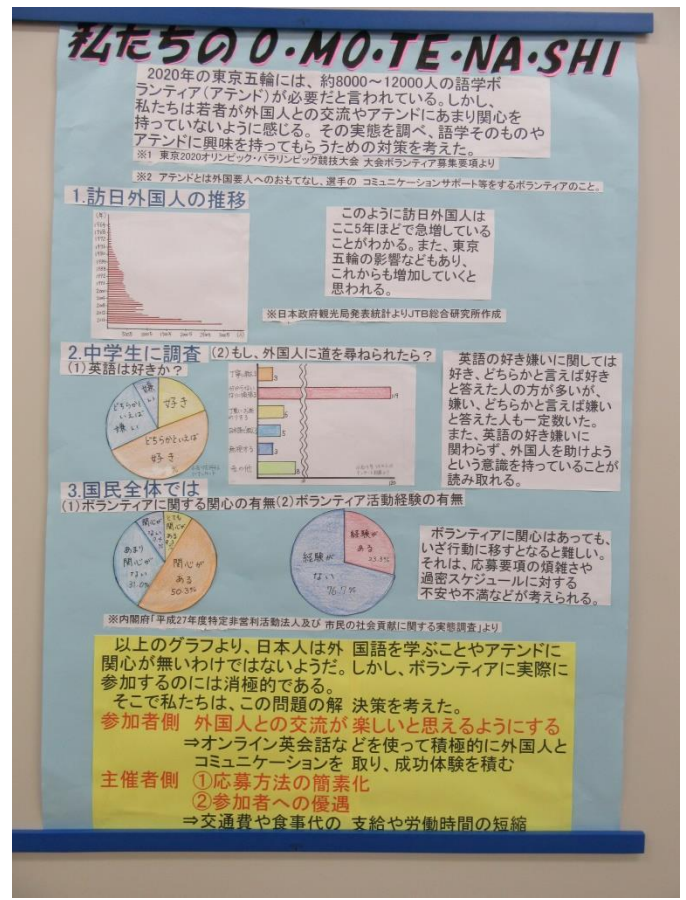 私たちの O・MO・TE・NA・SHI
2020年の東京五輪には、約8000～12000人の語学ボ
ランティア(アテンド)が必要だと言われている。しかし、
私たちは若者が外国人との交流やアテンドにあまり関心を
持っていないように感じる。その実態を調べ、語学そのものや
アテンドに興味を持ってもらうための対策を考えた。
※1 東京2020オリンピック・パラリンピック競技大会 大会ボランティア募集要項より
※2 アテンドとは外国要人へのおもてなし、選手の コミュニケーションサポート等をするボランティアのこと。
1.訪日外国人の推移
このように訪日外国人は
ここ5年ほどで急増している
ことがわかる。また、東京
五輪の影響などもあり、
これからも増加していくと
思われる。
※日本政府観光局発表統計よりJTB総合研究所作成
2.中学生に調査
(2)もし、外国人に道を尋ねられたら？
(1)英語は好きか？
嫌い
好き
どちらかといえば
嫌い
どちらかといえば
好き
無視する
その他
英語の好き嫌いに関しては
好き、どちらかと言えば好き
と答えた人の方が多いが、
嫌い、どちらかと言えば嫌い
と答えた人も一定数いた。
また、英語の好き嫌いに
関わらず、外国人を助けよう
という意識を持っていることが
読み取れる。
3.国民全体では
(1)ボランティアに関する関心の有無
(2)ボランティア活動経験の有無
関心が
ない
とても
関心が
ある
あまり
関心が
ない
31.0%
関心が
ある
50.3%
経験が
ある
23.3%
経験が
ない
76.7%
ボランティアに関心はあっても、
いざ行動に移すとなると難しい。
それは、応募要項の煩雑さや
過密スケジュールに対する
不安や不満などが考えられる。
※内閣府「平成27年度特定非営利活動法人及び 市民の社会貢献に関する実態調査」より
以上のグラフより、日本人は外 国語を学ぶことやアテンドに
関心が無いわけではないようだ。しかし、ボランティアに実際に
参加するのには消極的である。
そこで私たちは、この問題の解 決策を考えた。
参加者側 外国人との交流が 楽しいと思えるようにする
⇒オンライン英会話な どを使って積極的に外国人と
コミュニケーションを 取り、成功体験を積む
主催者側 ①応募方法の簡素化
②参加者への優遇
⇒交通費や食事代の 支給や労働時間の短縮